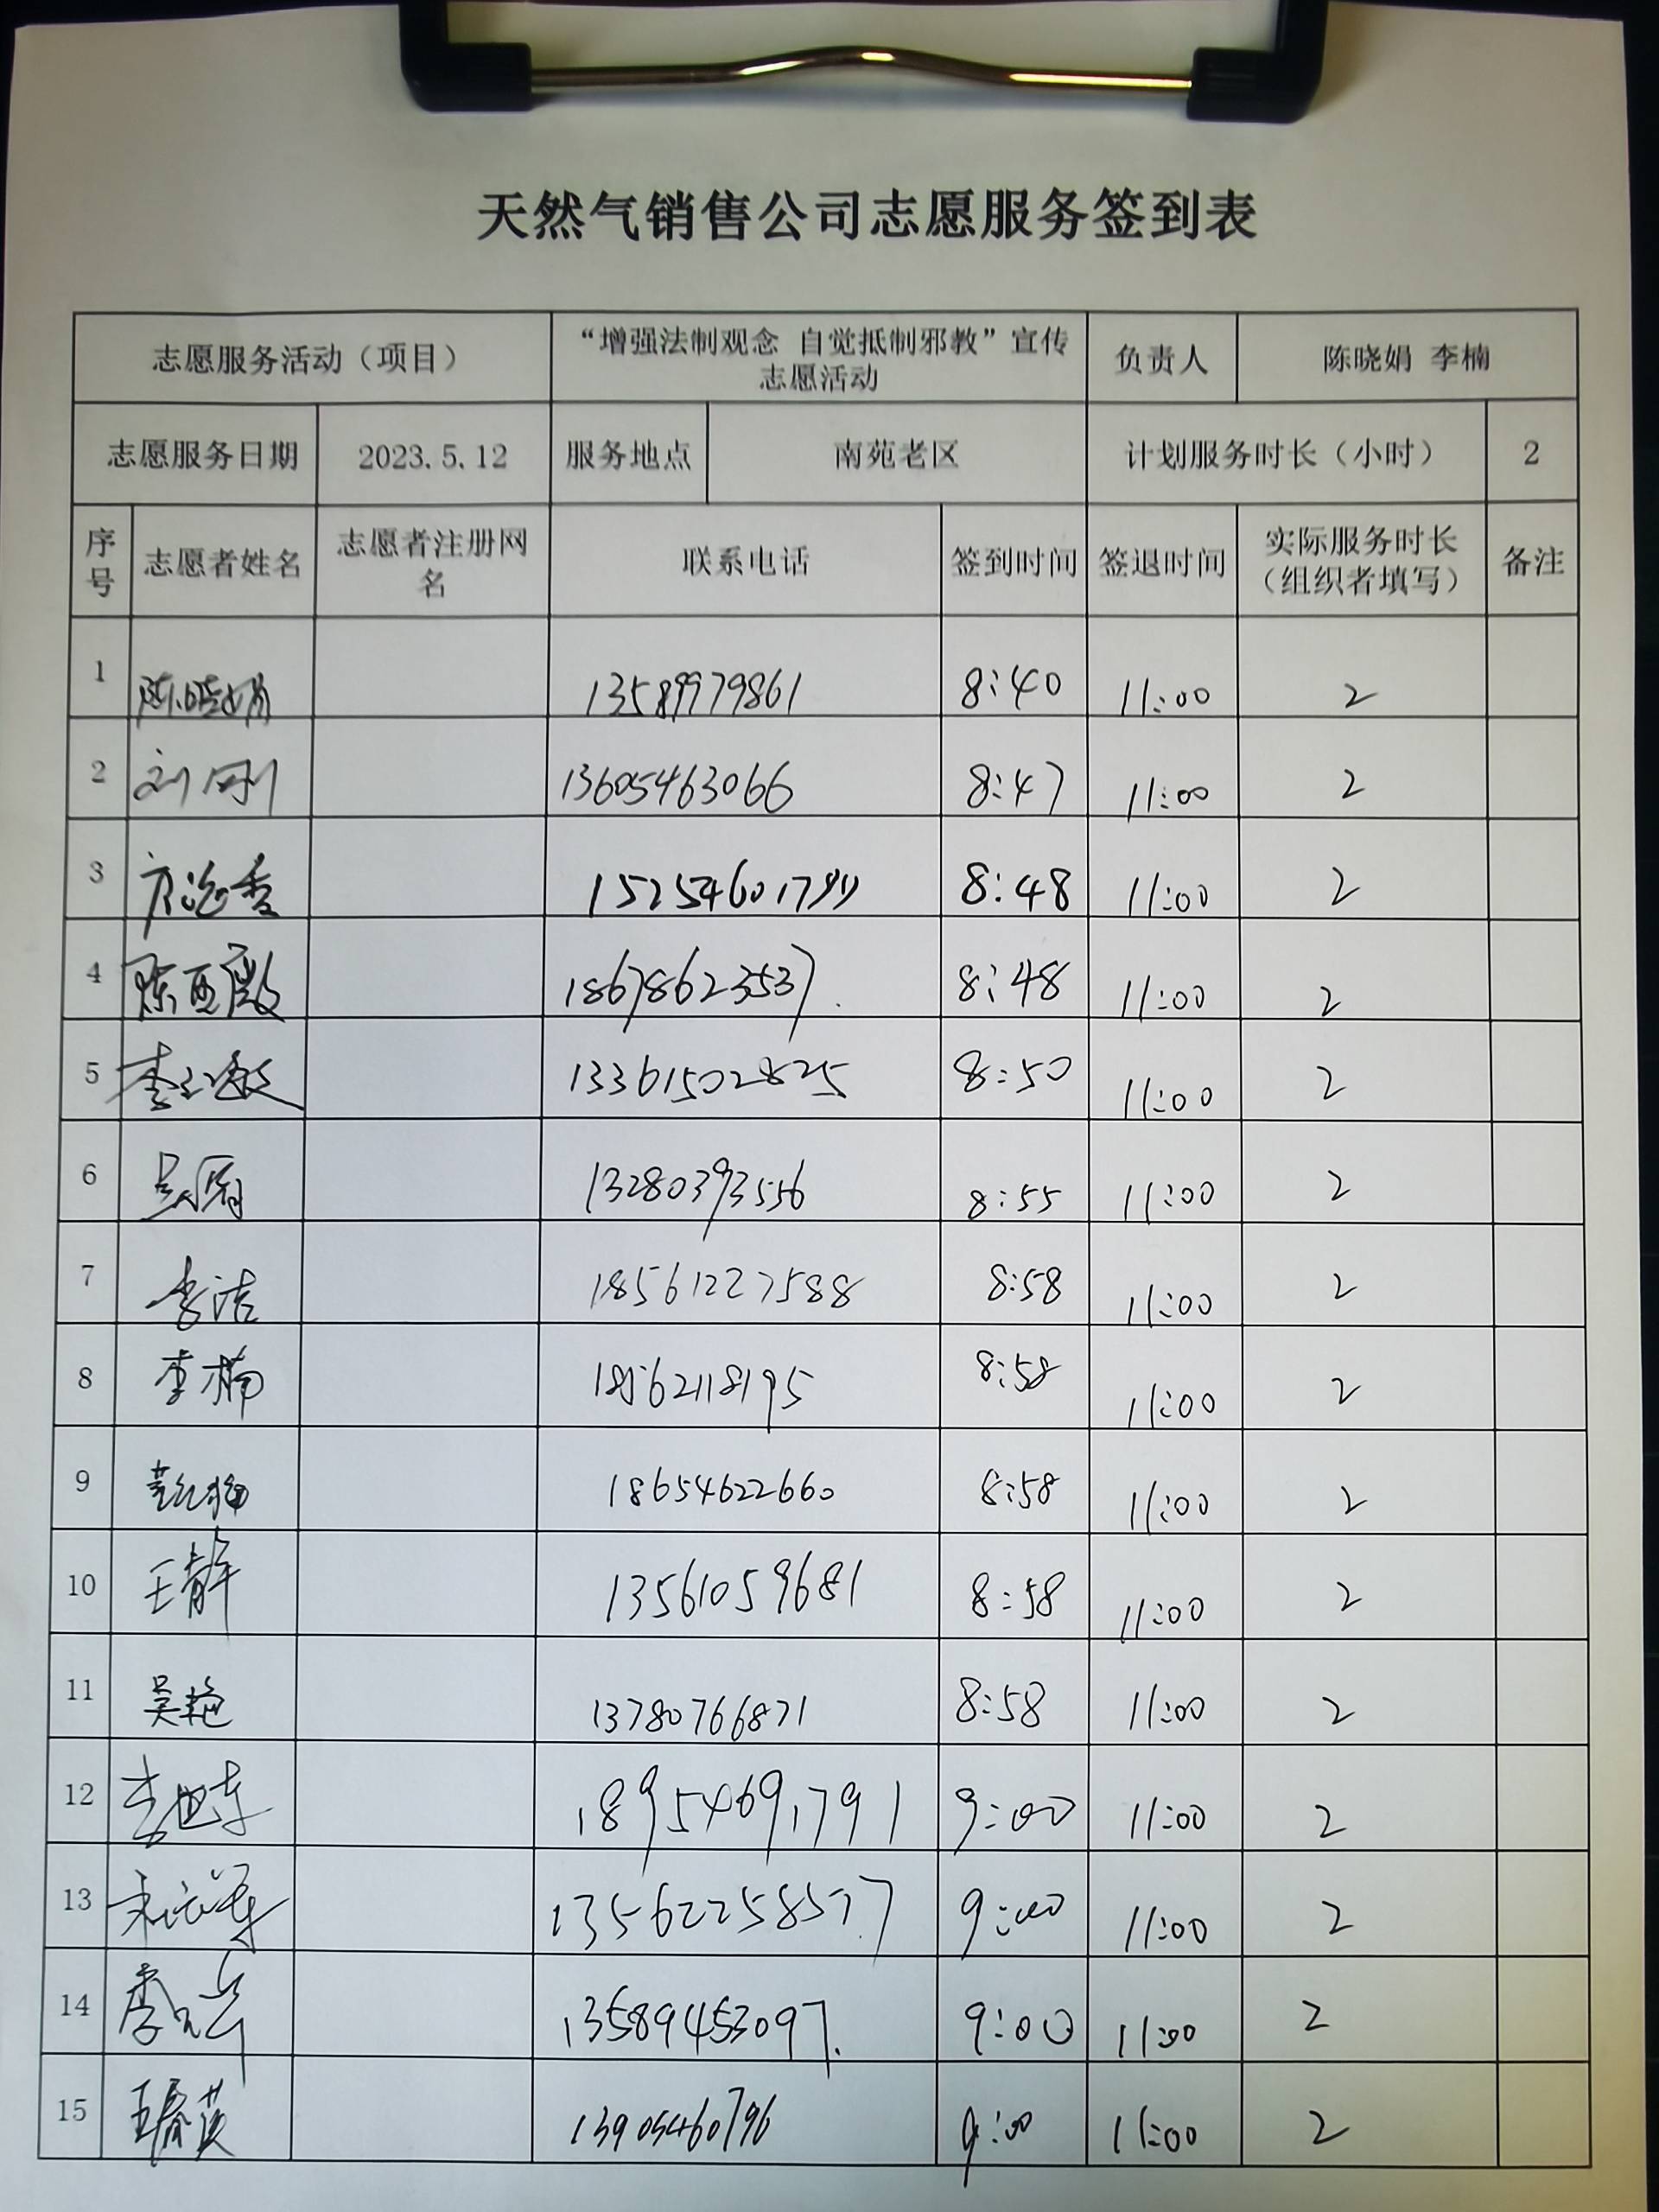 天然气销售公司志愿服务签到表
志愿服务活动（项目） “增强法制观念 自觉抵制邪教”宣传志愿活动 负责人 陈晓娟 李楠
志愿服务日期 2023.5.12 服务地点 南苑老区 计划服务时长（小时） 2
序号 志愿者姓名 志愿者注册网名 联系电话 签到时间 签退时间 实际服务时长（组织者填写） 备注
1 陈晓娟 13589979861 8:40 11:00 2
2 刘刚 13605463066 8:47 11:00 2
3 8:48 11:00 2
4 18678623537 8:48 11:00 2
5 13361502825 8:50 11:00 2
6 13280393556 8:55 11:00 2
7 李洁 18561227588 8:58 11:00 2
8 李楠 18562118195 8:58 11:00 2
9 18654622660 8:58 11:00 2
10 王静 13561059681 8:58 11:00 2
11 吴艳 13780766871 8:58 11:00 2
12 18954691791 9:00 11:00 2
13 13562258577 9:00 11:00 2
14 13589453097 9:00 11:00 2
15 13905460796 9:00 11:00 2